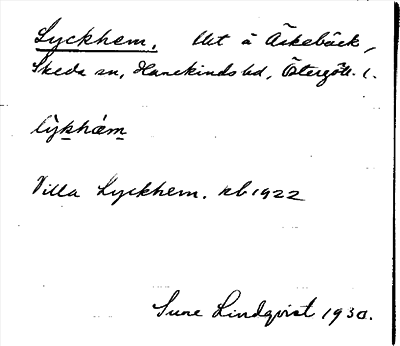 Lyckhem. Utt å Åskebäck,
Skeda sn, Hanekinds hd, Östergötl. l.
lỳkhæ̀m
Villa Lyckhem. kb 1922
Sune Lindqvist 1930.